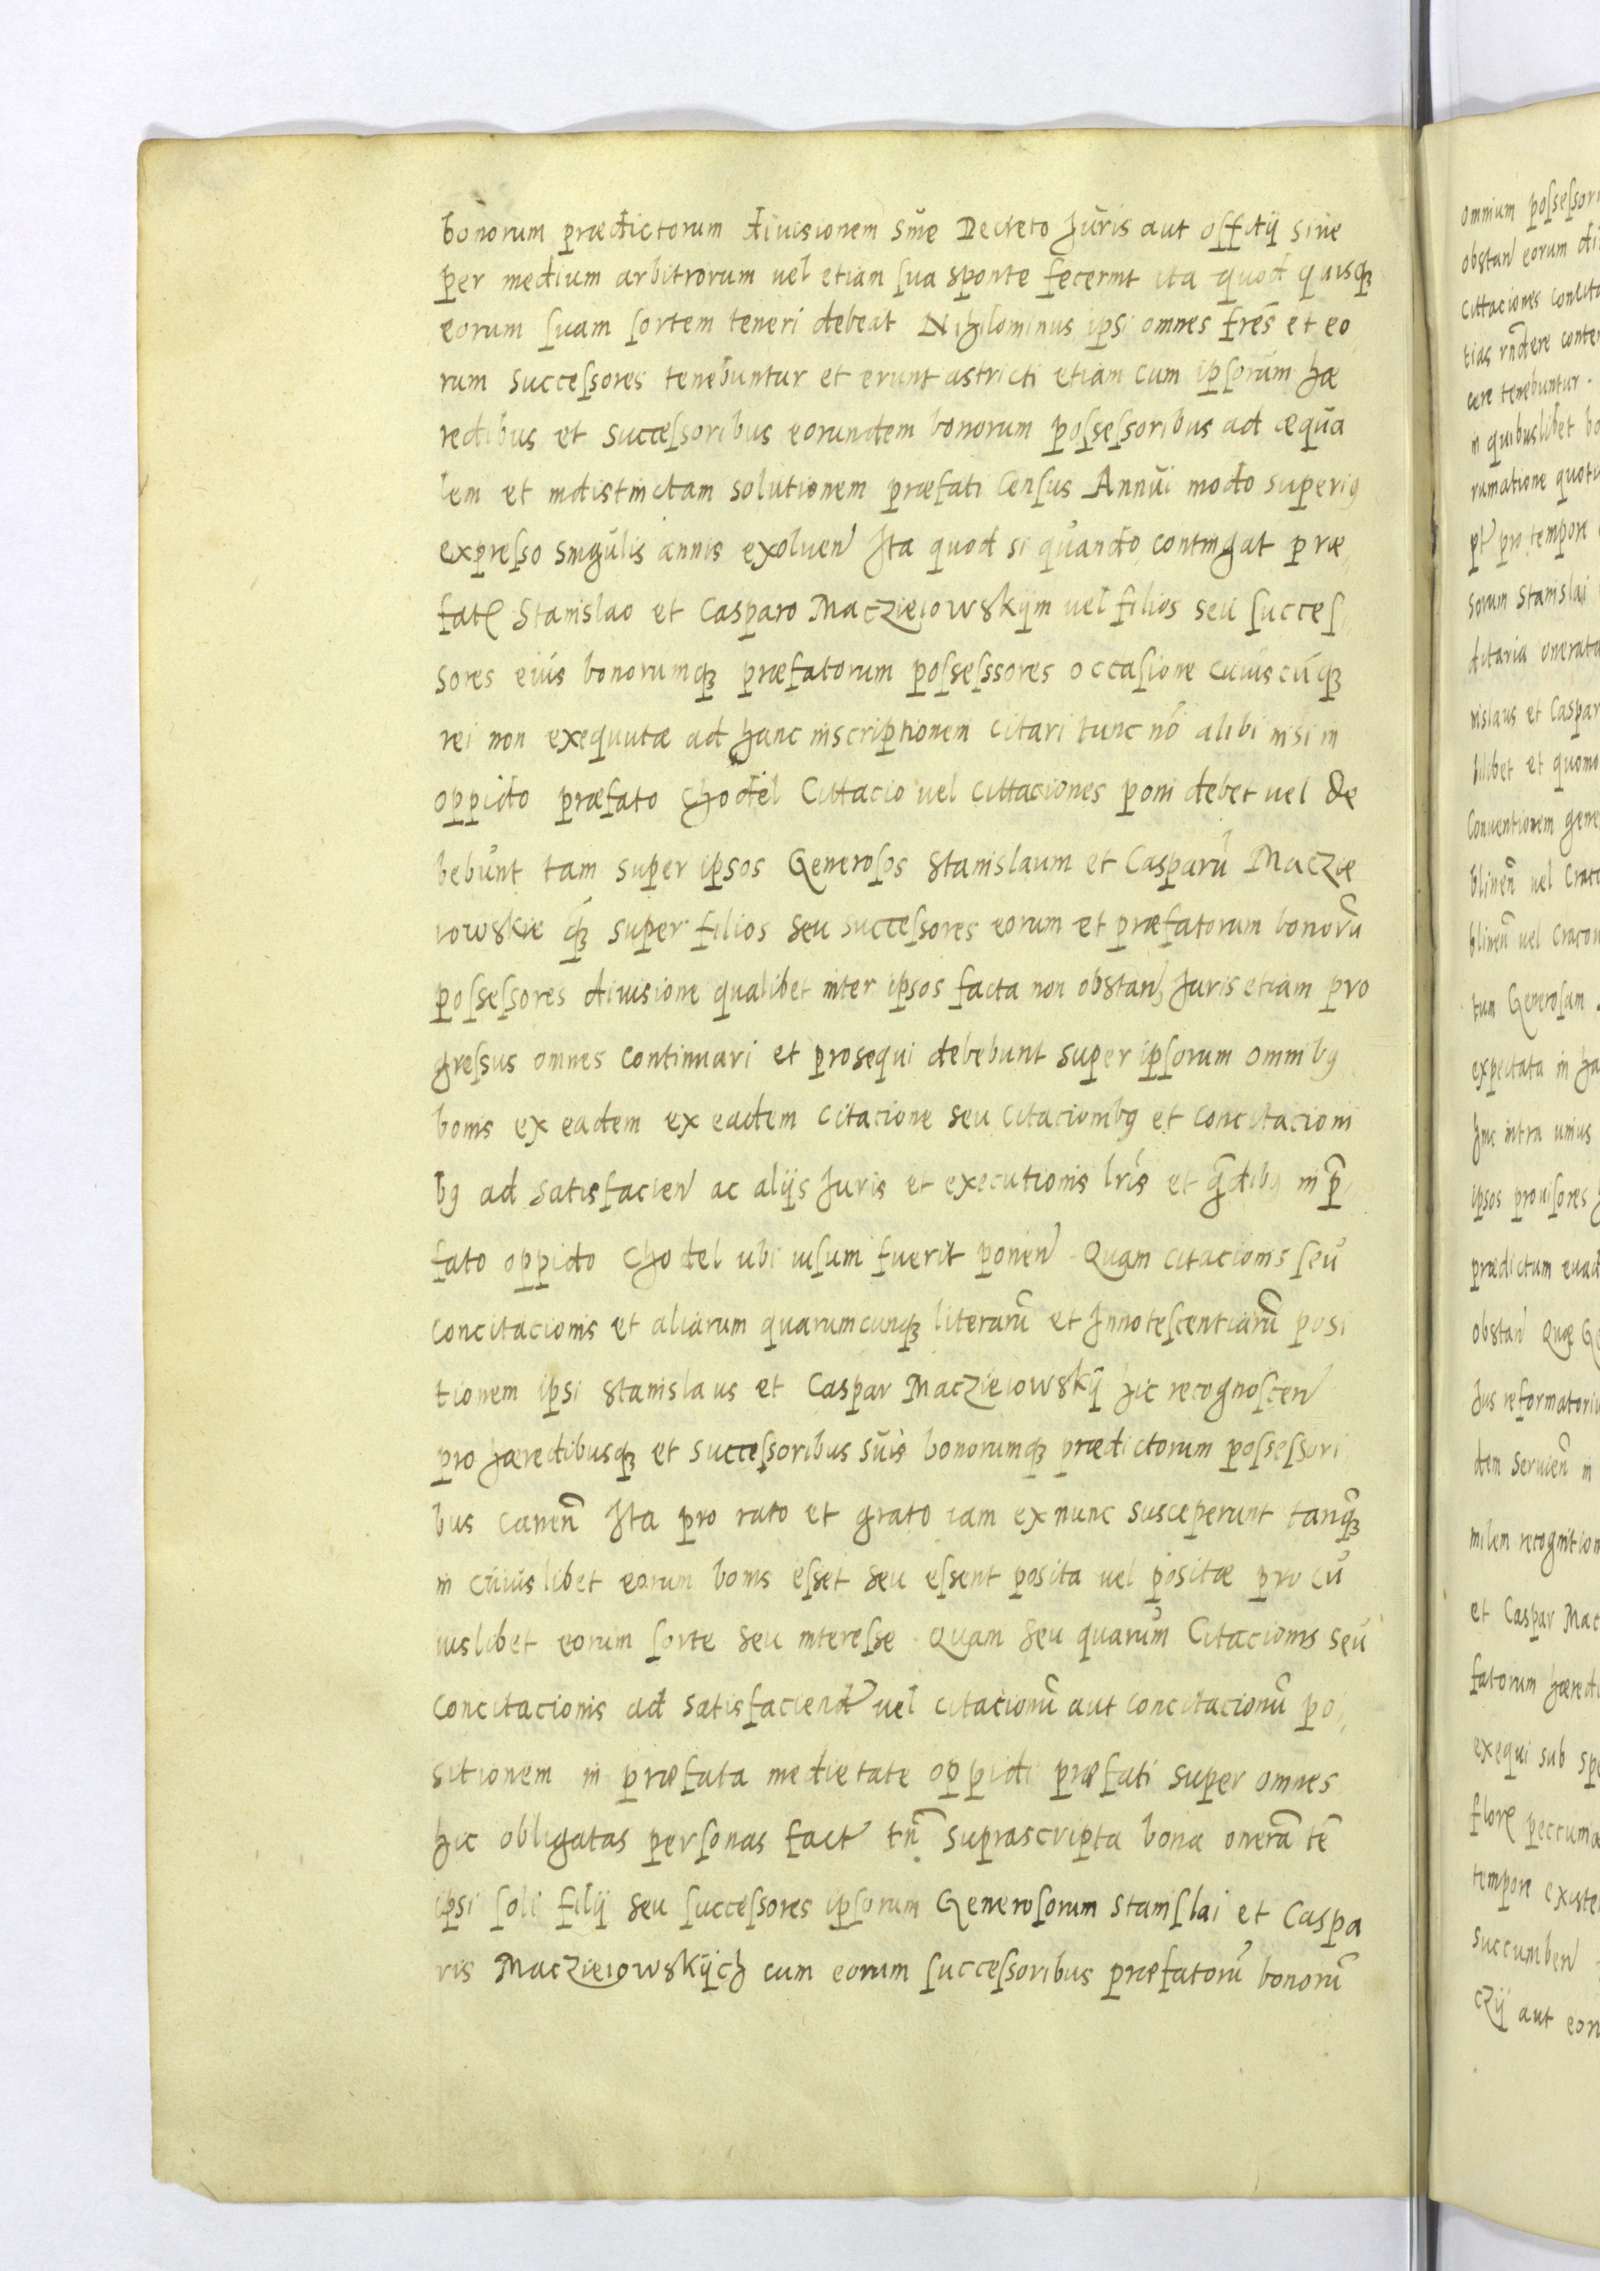 bonorum prædictorum diuisionem sine Decreto Juris aut offitij siue
per medium arbitrorum uel etiam ſua sponte fecerint ita quod quisqꝫ
eorum ſuam ſortem teneri debeat Nihilominus ipsi omnes fr̃es et eo
rum Succeſsores tenebuntur et erunt astricti etiam cum ipſorum hæ
redibus et succeſsoribus eorundem bonorum poſseſsoribus ad æqua
lem et indistinctam solutionem præfati Cenſus Annui modo superiꝰ
expreſso singulis annis exoluen̄ Ita quod si quando contingat præ,
fatꝭ Stanislao et Casparo Maczieiowskijm uel filios seu ſucceſ,
sores eius bonorumqꝫ præfatorum poſseſssores occaſione cuiuscūqꝫ
rei non exequutæ ad hanc inscriptionem citari tunc nō alibi nisi in
oppido præfato Chodel Cittacio uel cittaciones poni debet uel de
bebunt tam super ipsos Generoſos Stanislaum et Casparū Maczie
iowskie qꝫ super filios seu succeſsores eorum et præfatorum bonorū
poſseſsores diuisione qualibet inter ipsos facta non obstan̄, Juris etiam pro
greſsus omnes continuari et prosequi debebunt super ipſorum omnibꝰ
bonis ex eadem ex eadem citacione seu citacionibꝰ et concitacioni
bꝰ ad satisfacien̄ ac alijs Juris et executionis lr̃is et gr̃adibꝰ in p̄,
fato oppido Chodel ubi uiſum fuerit ponen̄ . Quam citacionis ſeu
concitacionis et aliarum quarumcunqꝫ literarū et Innoteſcentiarū posi
tionem ipsi Stanislaus et Caspar Maczieiowskij hic recognoſcen̄
pro hæredibusqꝫ et succeſsoribus suis bonorumqꝫ prædictorum poſseſsori
bus cauen̄ Ita pro rato et grato iam ex nunc susceperunt tanqꝫ
in cuiuslibet eorum bonis eſset seu eſsent posita uel positæ pro cu
iuslibet eorum ſorte seu intereſse . Quam seu quarum Citacionis seu
concitacionis ad satisfaciend uel citacionū aut concitacionū po,
sitionem in præfata medietate oppidi præfati super omnes
hic obligatas perſonas fact tn̄ suprascripta bona onerā tē
ipsi ſoli filij seu ſucceſsores ipſorum Generoſorum Staniſlai et Caspa
ris Maczieiowskijch cum eorum ſucceſsoribus præfatorū bonorū
omnium poſseſsor
obstan̄ eorum di
cittaciones concita
tias rn̄dere conte
cere tenebuntur .
in quibuslibet bo
rumatione quotu
pro tempore
sorum Stanislai
ditaria onerata
nislaus et Caspar
libet et quomo
Conuentionem gene
blinen̄ uel Crac
blinen̄ uel Cracou
tum Generoſam
expectata in ha
hinc intra unius
ipsos prouiſores
prædictum euad
obstan̄ Quæ Ge
Jus reformatoriu
dem seruien̄ in
milem recognition
et Caspar Mac
fatorum hæredi
exequi sub spe
florꝭ peccuniæ
tempore existe
succumben̄
czij aut eoru